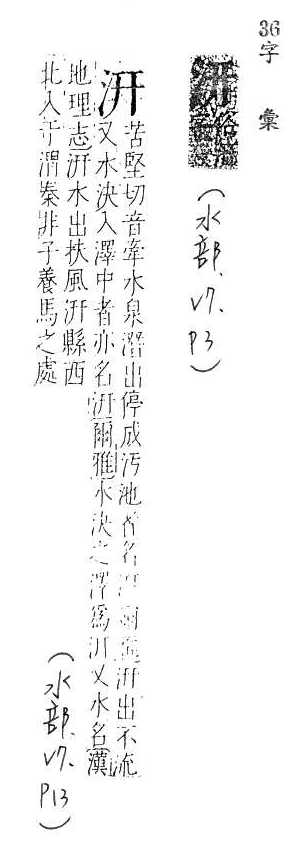 36
字彙
(水部、V7、P3)
汧 苦堅切音牽水泉潛出停成汚池者名汧爾雅汧出不流
又水決入澤中者亦名汧爾雅水決之澤爲汧又水名漢
地理志汧水出扶風汧縣西
北入于渭秦非子養馬之處
(水部、V7、P13)